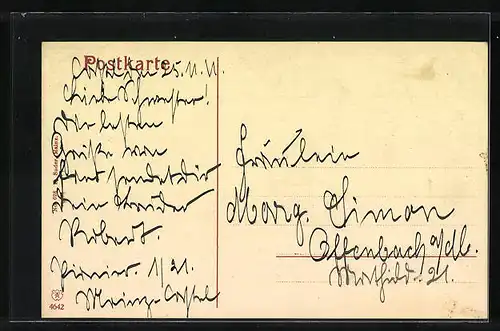 Postkarte
25.11.11.
Liebe Schwester!
Die besten
Grüße von
hier sendet Dir
Dein Bruder
Robert.
Pionier. 1/21.
Mainz-Castel
Fräulein
Marg. Simon
Offenbach a/M.
Mathild. 21.
4642